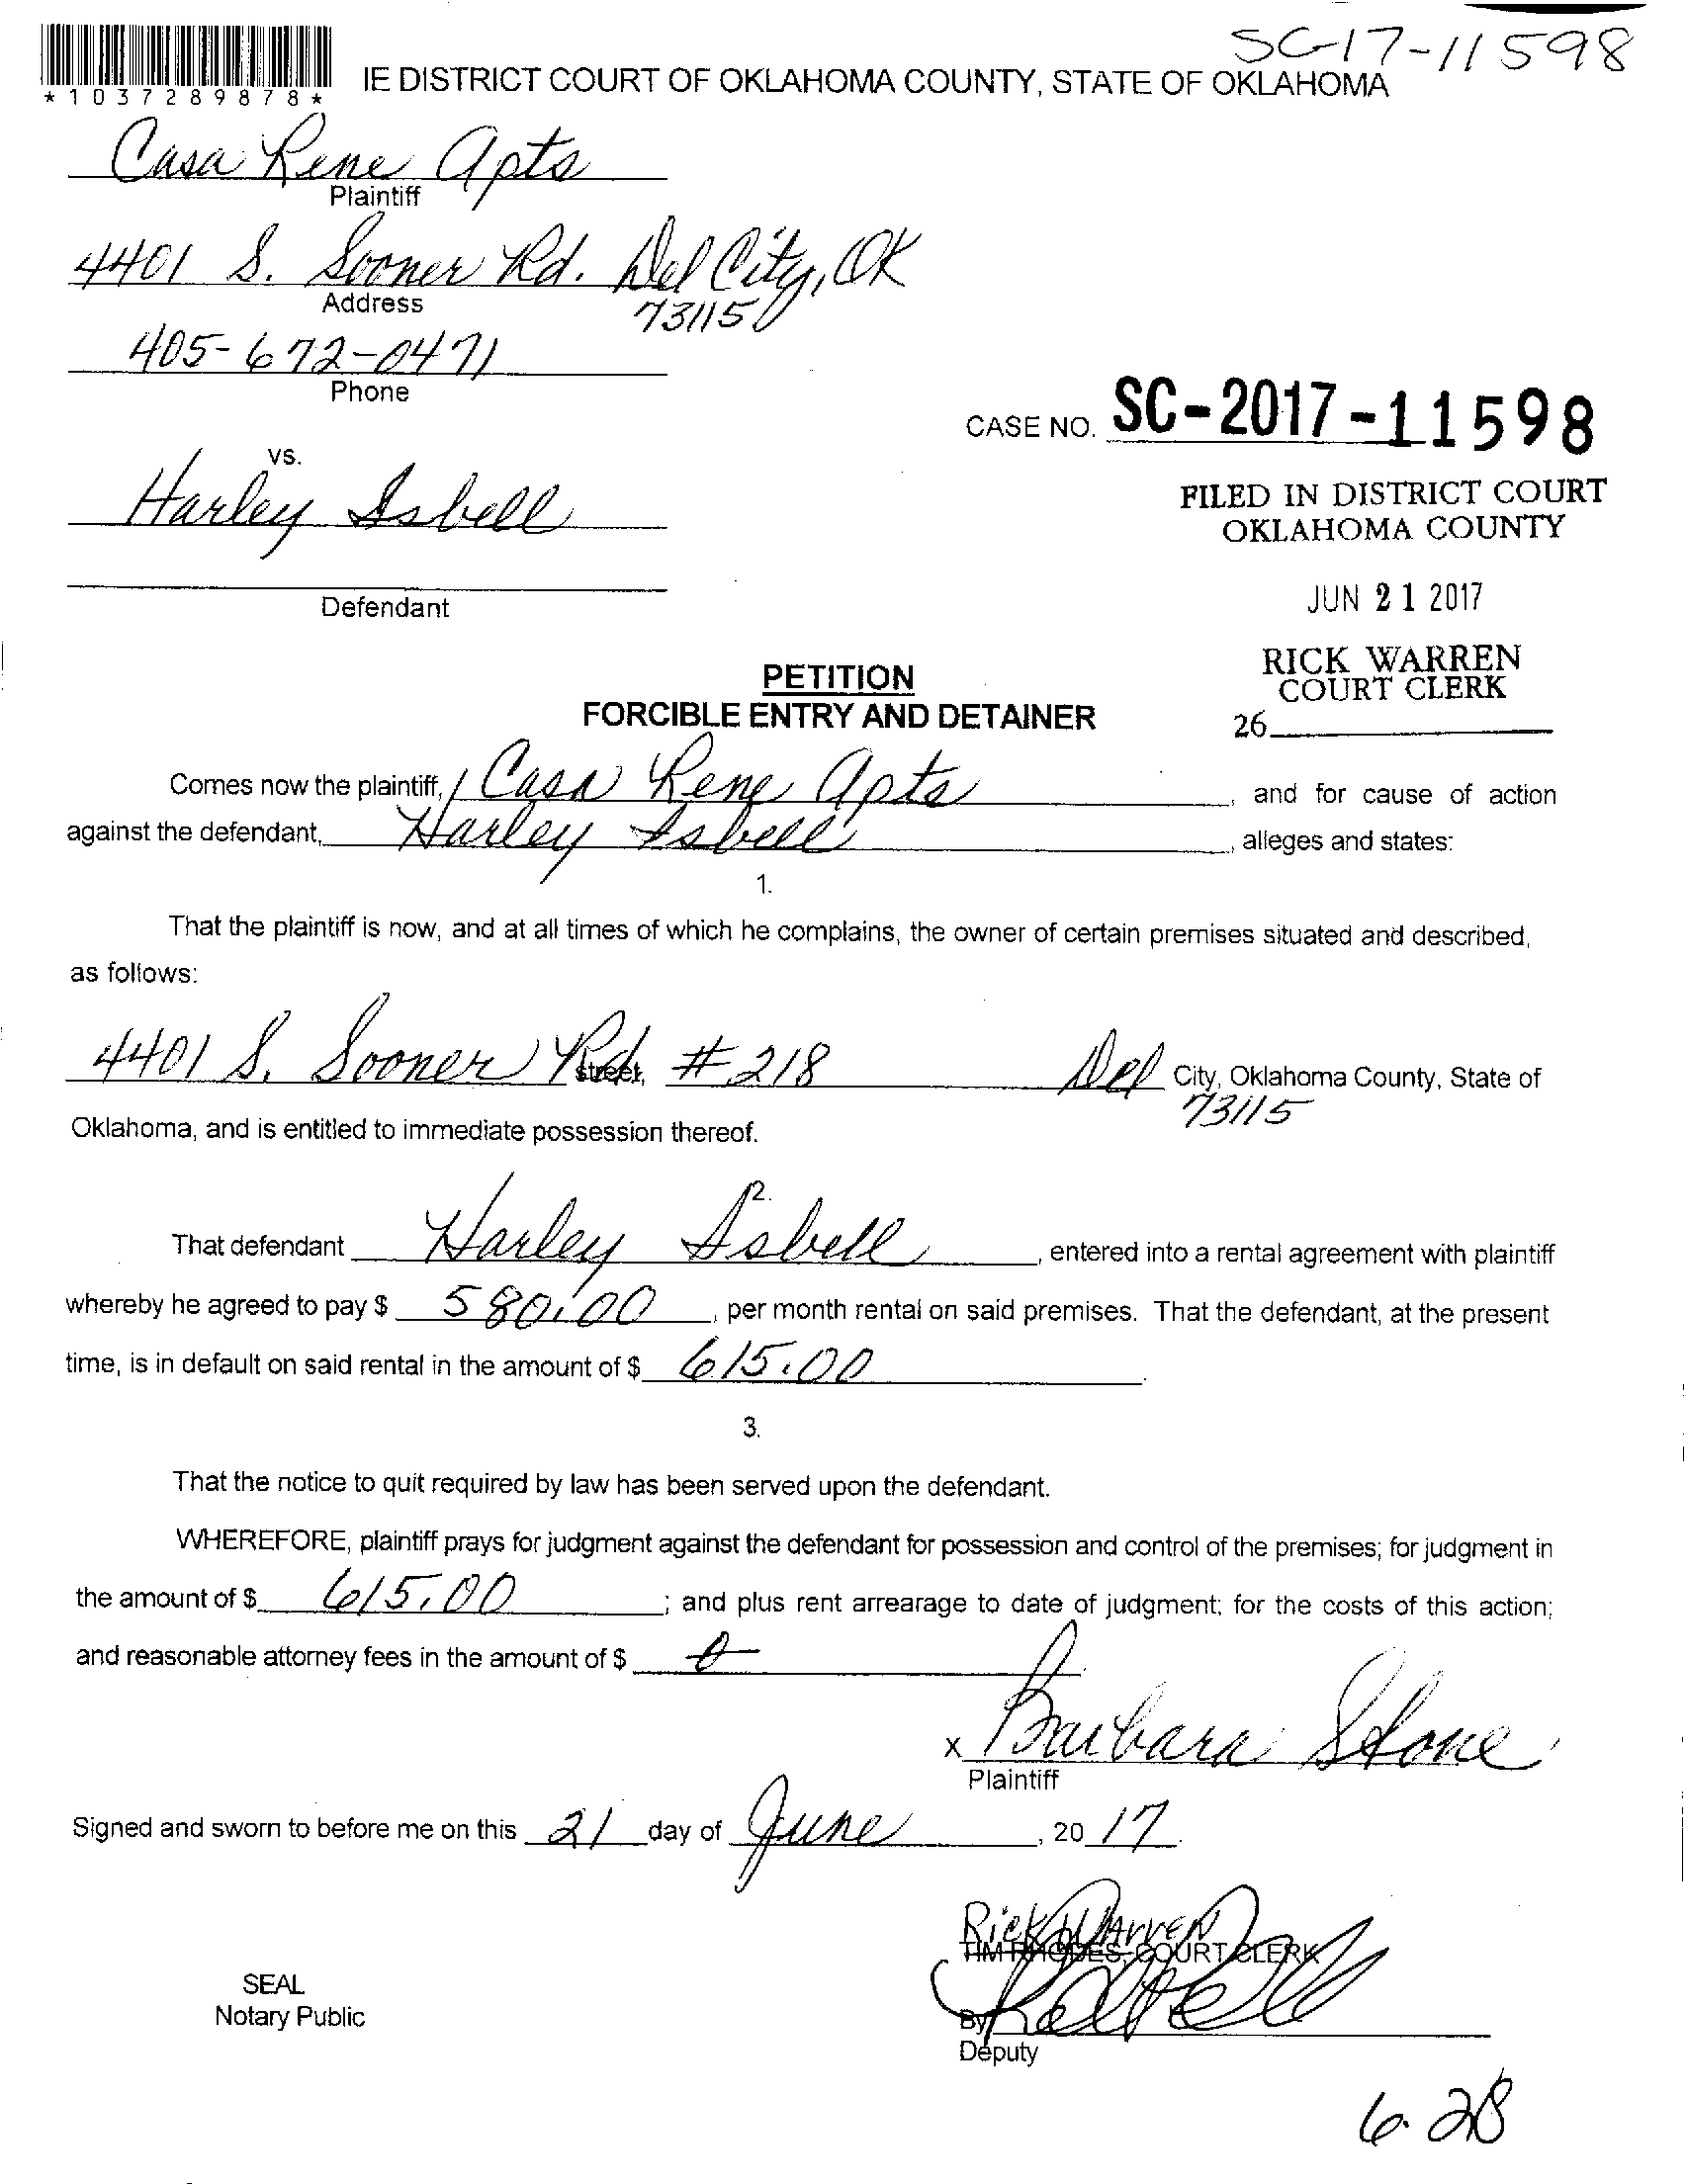 SC-17-11598
*1037289878*
IE DISTRICT COURT OF OKLAHOMA COUNTY, STATE OF OKLAHOMA
Casa Rene Apts
Plaintiff
4401 S. Sooner Rd. Del City, OK
Address
73115
405-672-0471
Phone
CASE NO. SC-2017-11598
vs.
Harley Isbell
FILED IN DISTRICT COURT
OKLAHOMA COUNTY
Defendant
JUN 21 2017
RICK WARREN
COURT CLERK
26
PETITION
FORCIBLE ENTRY AND DETAINER
Comes now the plaintiff, Casa Rene Apts, and for cause of action
against the defendant, Harley Isbell, alleges and states:
1.
That the plaintiff is now, and at all times of which he complains, the owner of certain premises situated and described,
as follows:
4401 S. Sooner Rd. street, # 218 Del City, Oklahoma County, State of
73115
Oklahoma, and is entitled to immediate possession thereof.
2.
That defendant Harley Isbell, entered into a rental agreement with plaintiff
whereby he agreed to pay $ 580.00, per month rental on said premises. That the defendant, at the present
time, is in default on said rental in the amount of $ 615.00.
3.
That the notice to quit required by law has been served upon the defendant.
WHEREFORE, plaintiff prays for judgment against the defendant for possession and control of the premises; for judgment in
the amount of $ 615.00; and plus rent arrearage to date of judgment; for the costs of this action;
and reasonable attorney fees in the amount of $ 0
x Barbara Stone
Plaintiff
Signed and sworn to before me on this 21 day of June, 20 17.
Rick Warren
TIM RHODES, COURT CLERK
SEAL
Notary Public
By
Deputy
6-28